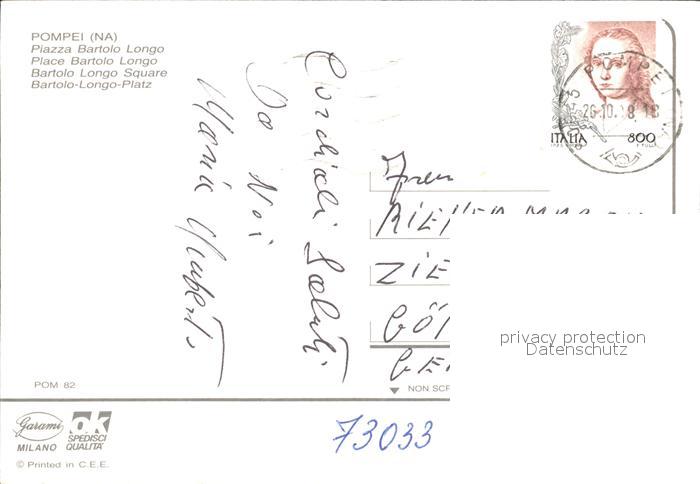 POMPEI (NA)
Piazza Bartolo Longo
Place Bartolo Longo
Bartolo Longo Square
Bartolo-Longo-Platz
Cordiali Saluti
Da Noi
Maria
ITALIA 800
POMPEI
26.10.
ZIE
GÖ
GE
privacy protection
Datenschutz
NON SCR
POM 82
73033
Garami
MILANO
OK
SPEDISCI
QUALITA'
© Printed in C.E.E.